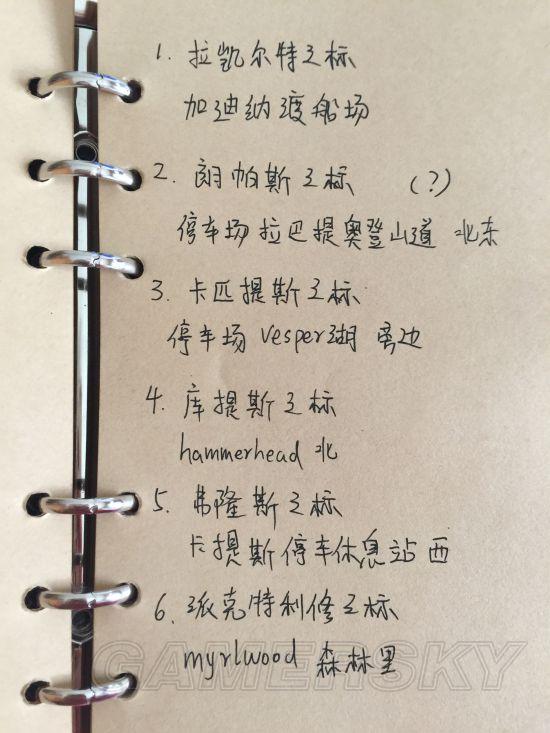 1. 拉凯尔特之标
加迪纳渡船场
2. 朗帕斯之标 (?)
停车场拉巴提奥登山道 北东
3. 卡匹提斯之标
停车场 vesper湖 旁边
4. 库提斯之标
hammerhead 北
5. 弗隆斯之标
卡提斯停车休息站 西
6. 派克特利修之标
myrlwood 森林里
GAMERSKY